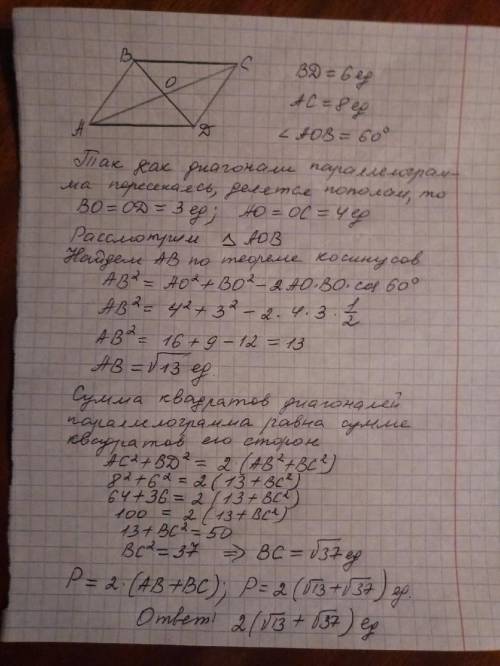 B
C
O
A
D
BD = 6 ед
AC = 8 ед
∠AOB = 60°
Так как диагонали параллелограм-
ма пересекаясь, делятся пополам, то
BO = OD = 3 ед; AO = OC = 4 ед
Рассмотрим △ AOB
Найдем AB по теореме косинусов
AB² = AO² + BO² - 2AO·BO·cos 60°
AB² = 4² + 3² - 2·4·3·1/2
AB² = 16 + 9 - 12 = 13
AB = √13 ед.
Сумма квадратов диагоналей
параллелограмма равна сумме
квадратов его сторон
AC² + BD² = 2 (AB² + BC²)
8² + 6² = 2 (13 + BC²)
64 + 36 = 2 (13 + BC²)
100 = 2 (13 + BC²)
13 + BC² = 50
BC² = 37 ⇒ BC = √37 ед
P = 2·(AB + BC); P = 2(√13 + √37) ед.
Ответ: 2(√13 + √37) ед